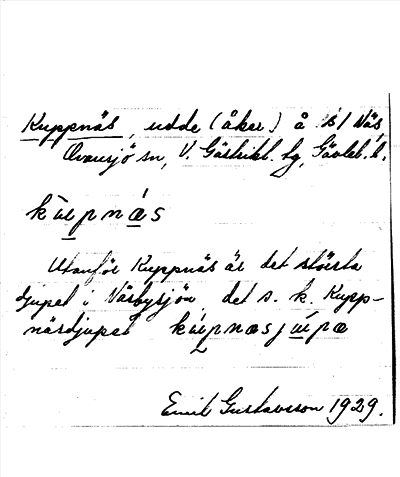 Kuppnäs, udde (åker) å s/ Näs
Ovansjö sn, V. Gästrikl. tg, Gävleb. l.
kùpnás
Utanför Kuppnäs är det största
djupet i Näsbysjön det s. k. Kupp-
näsdjupet kùpnæsjúpæ
Emil Gustavsson 1929.